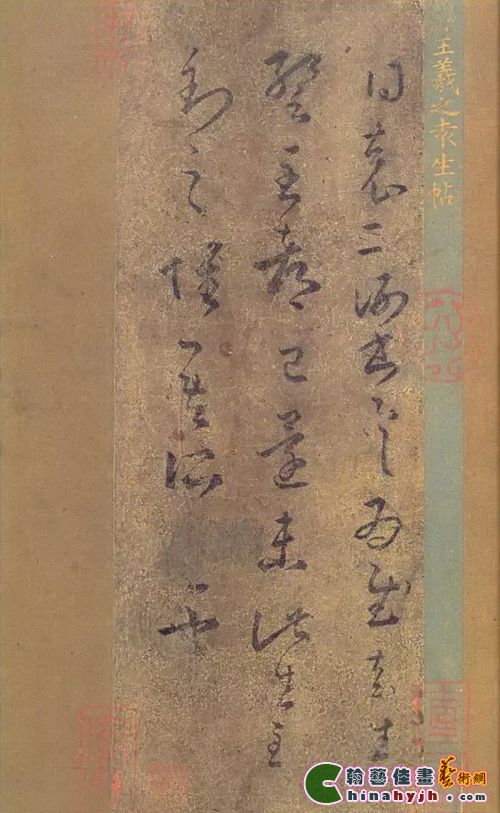 王羲之袁生帖
得袁二謝書具為慰袁生
暫至都已還未此生至
到之懷吾所也
翰藝佳畫藝術網
Chinahyjh.com